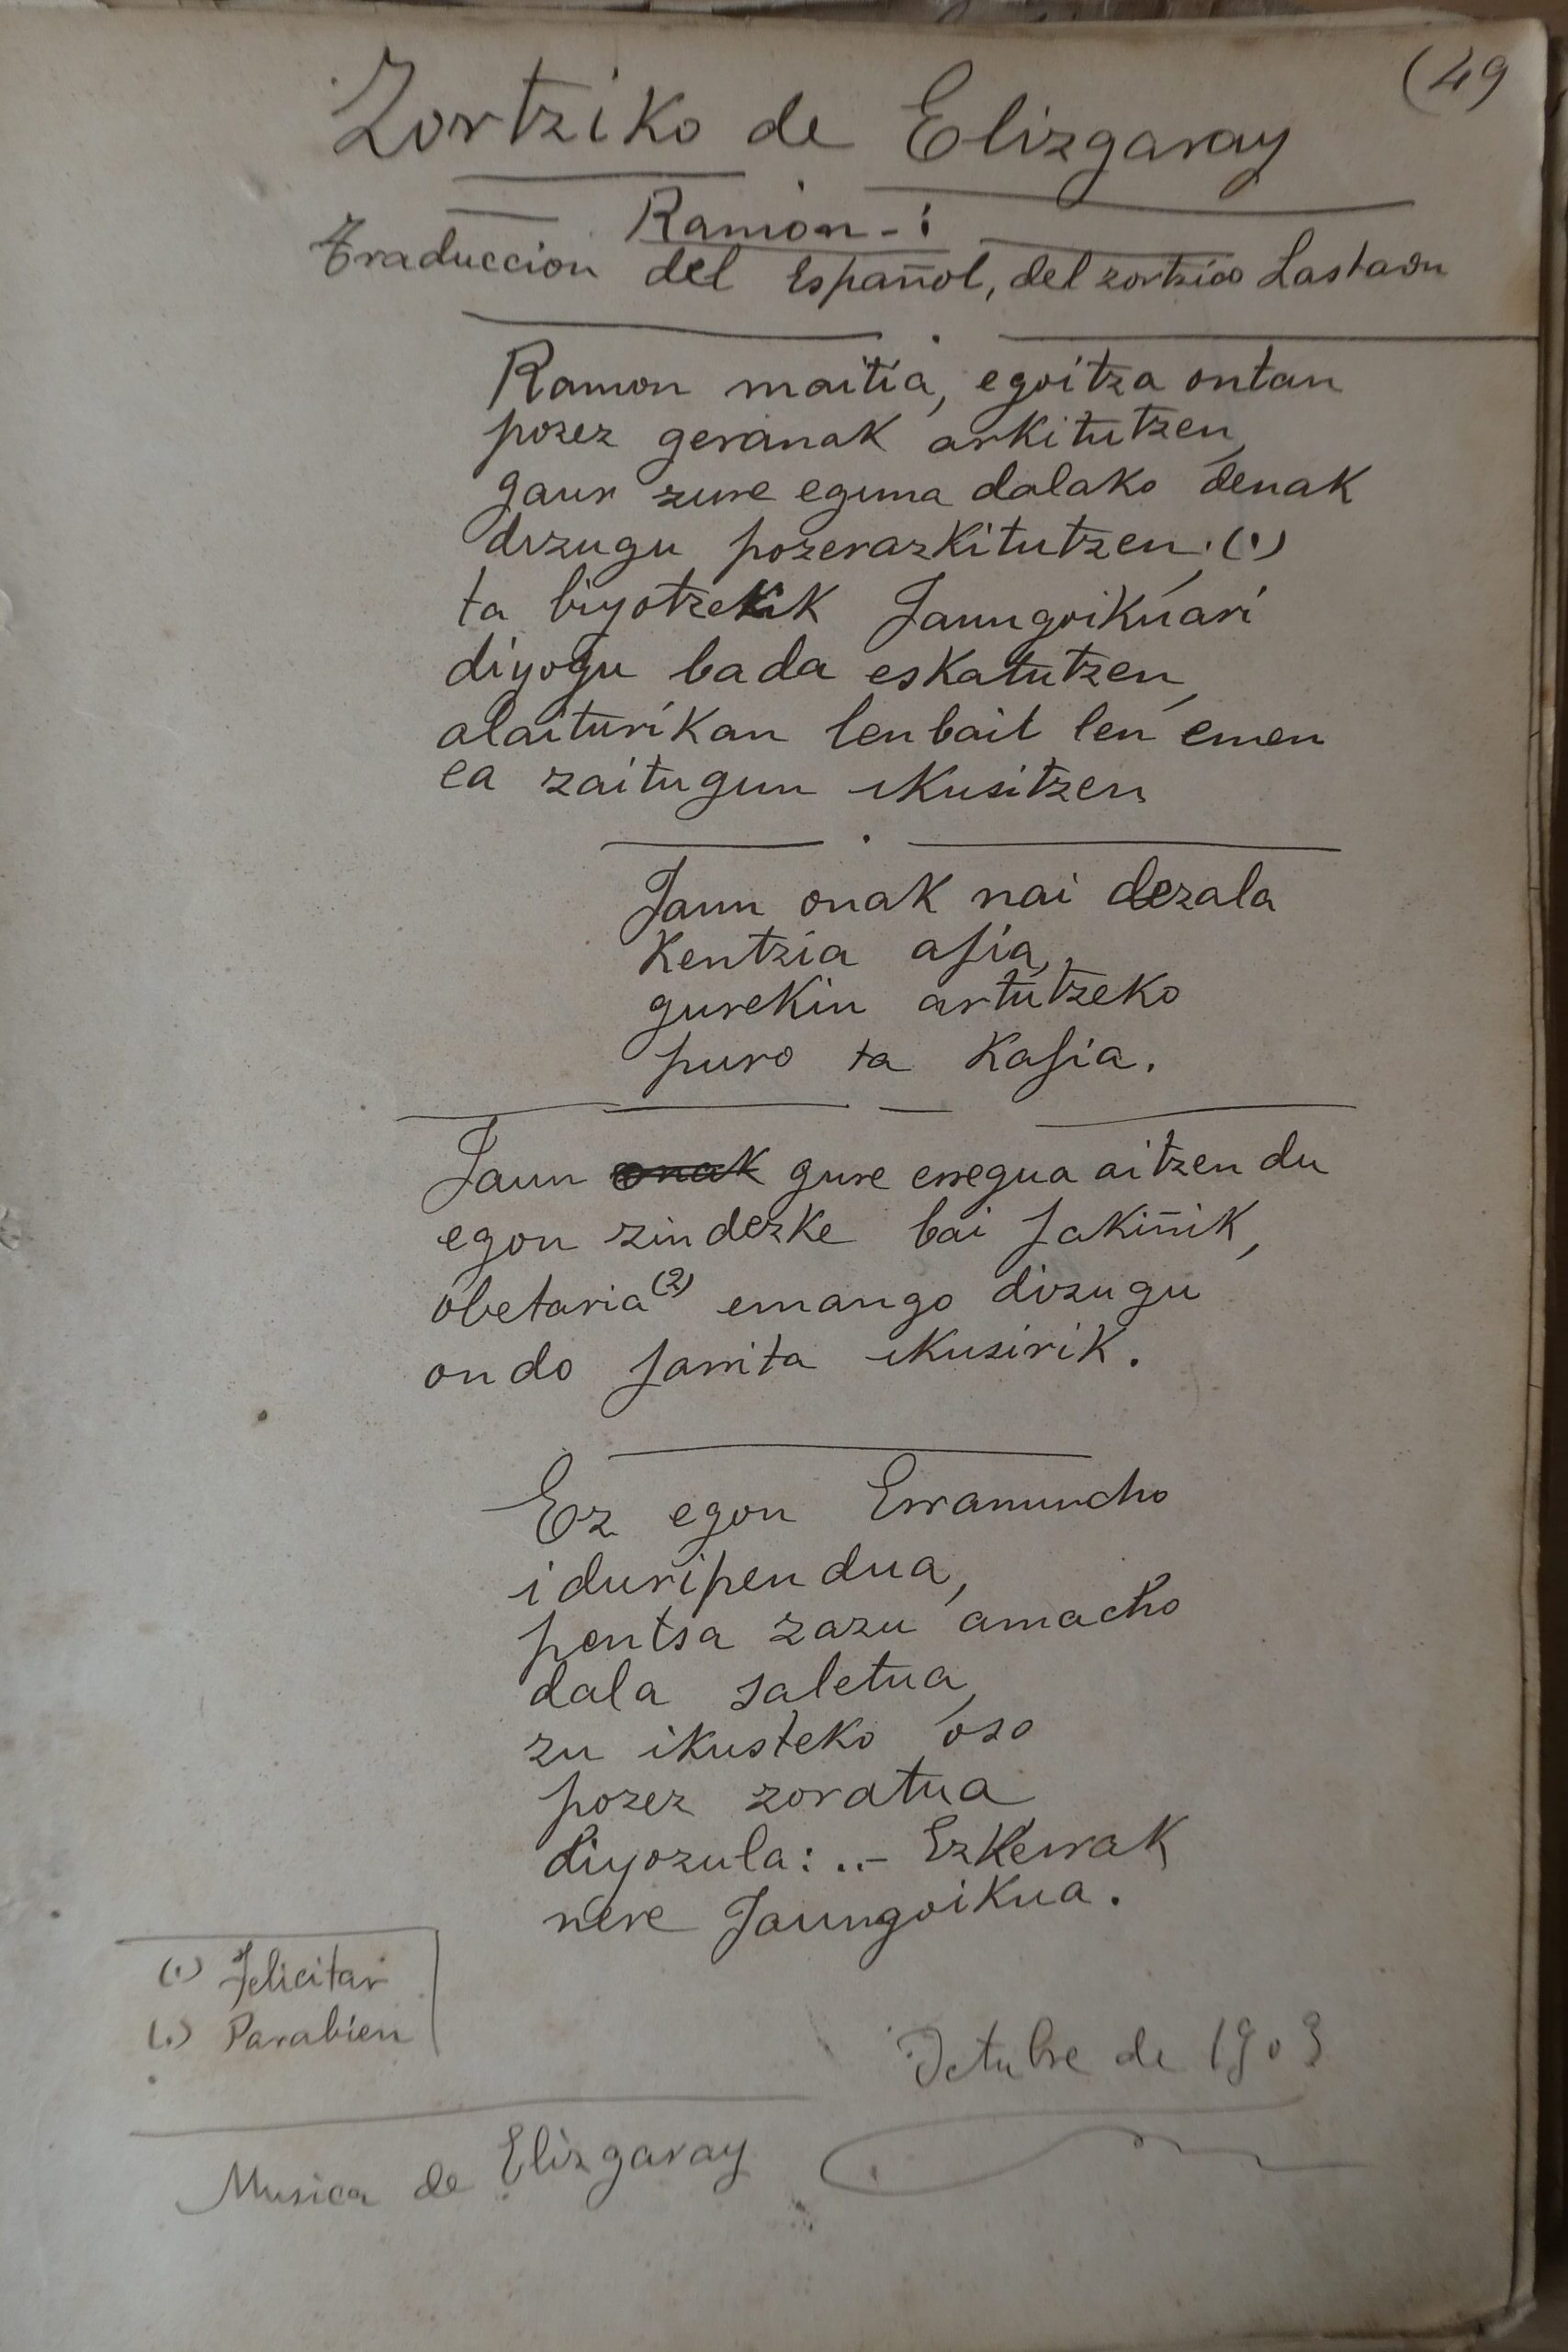 (49
Zortziko de Elizgaray
Ramon-i
Traduccion del Español, del zortzico
Ramon maitia, egoitza ontan
pozez geranak arkitutzen,
gaur zure eguna dalako denak
dizugu pozerazkitutzen, (1)
ta biyotzekik Jaungoikuari
diyogu bada eskatutzen,
alaiturikan lenbait len emen
ea zaitugun ikusitzen
Jaun onak nai dezala
Kentzia asia,
gurekin artutzeko
puro ta Kafia.
Jaun onak gure erregua aitzen du
egon zindezke bai jakiñik,
obetaria (2) emango dizugu
ondo jarrita ikusirik.
Ez egon Erramuncho
iduripendua,
pentsa zazu amacho
dala saletua,
zu ikusteko oso
pozez zoratua
diyozula: ..- Ezkerrak
nere Jaungoikua.
(1) Felicitar
(.) Parabien
Octubre de 1903
Musica de Elizgaray